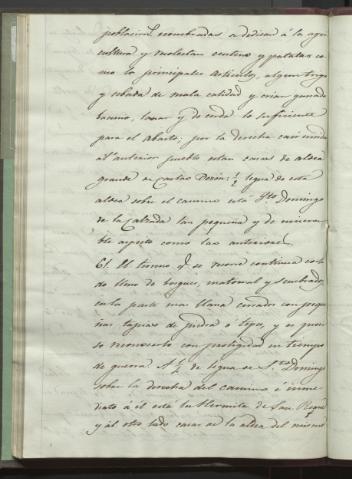 poblacion. acombradas se dedican á la agri
cultura y molestan centeno y patatas co
mo lo principales articulos, algun trigo
y cebada de mala calidad y crian ganado
bacuno, lanar y de cerda lo suficiente
para el abasto; por la derecha casi unida
al anterior pueblo estan casas de aldea
grande ó Castro Dozon; ½ legua de esta
aldea sobre el camino esta Sto. Domingo
de la Calzada tan pequeña y de misera
ble aspecto como las anteriores
61. El terreno qe. se recorre continua corta
do lleno de bosques, matorral y sembrados
en la parte mas llana cercados con peque
ñas tapias de piedra ó tepes, y es preci
so reconocerlo con prolijidad en tiempo
de guerra. A ½ de legua de Sto. Domingo
sobre la derecha del camino é inme
diato á él está la Hermita de San Roque
y al otro lado casas de la aldea del mismo